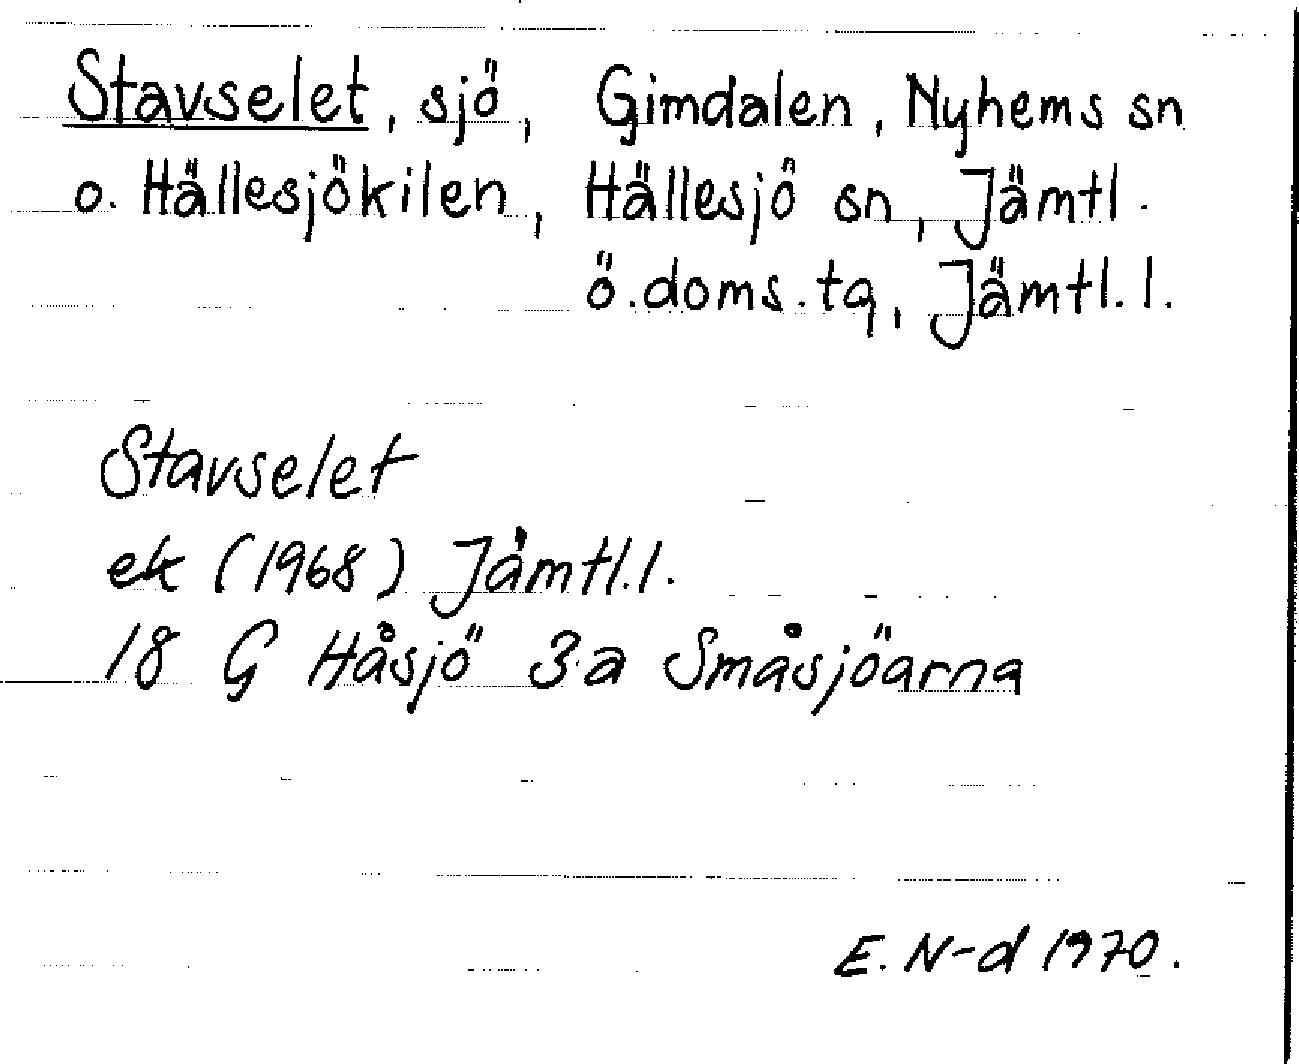 Stavselet, sjö, Gimdalen, Nyhems sn
o. Hällesjökilen, Hällesjö sn, Jämtl.
ö.doms.tg, Jämtl.l.
Stavselet
ek (1968) Jämtl.l.
18 G Håsjö 3a Småsjöarna
E. N-d 1970.